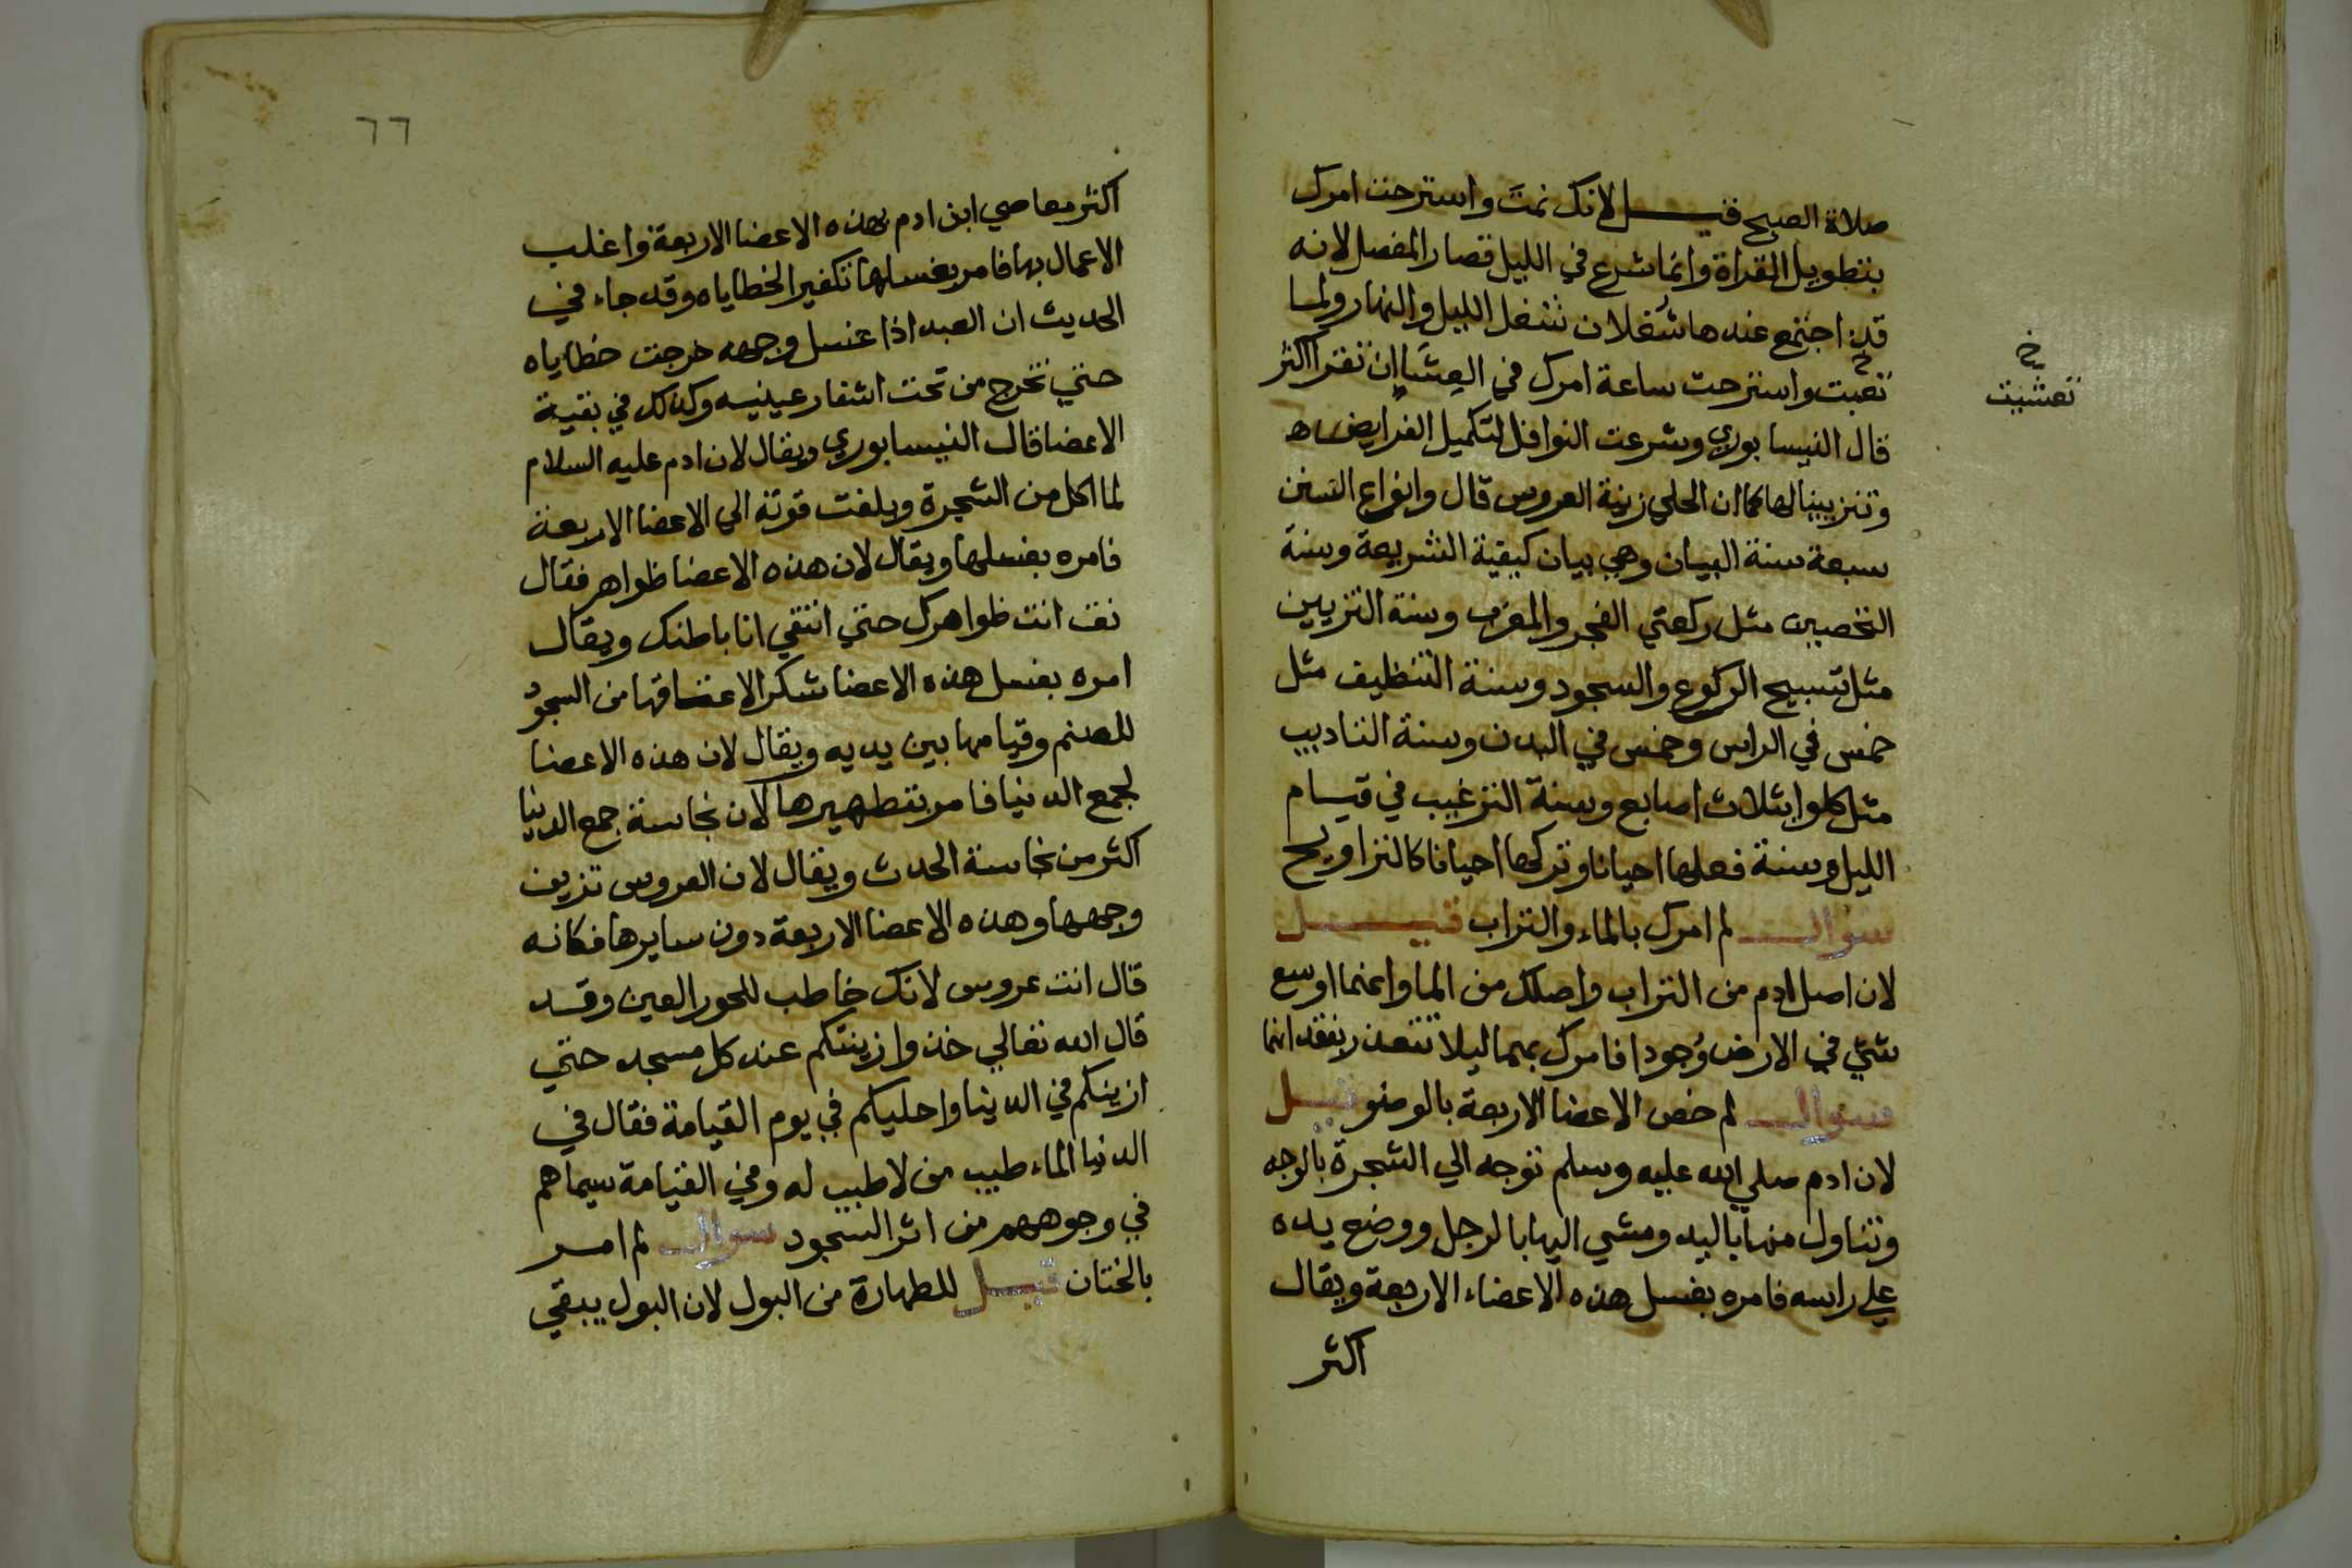 صلاة الصبح قيل لانك نمت واسترحت امرك
بتطويل القراة وانما شرع في الليل قصار المفصل لانه
قد اجتمع عندها شغلان شغل الليل والنهار ولما
تعبت واسترحت ساعة امرك في العشا ان تقرا اكثر
خ
تعشيت
قال النيسابوري وشرعت النوافل لتكميل الفرايض
وتزيينا لها كما ان الحلي زينة العروس قال وانواع السنن
سبعة سنة البيان وهي بيان كيفية الشريعة وسنة
التخصيص مثل ركعتي الفجر والمغرب وسنة التزيين
مثل تسبيح الركوع والسجود وسنة التنظيف مثل
خمس في الراس وخمس في البدن وسنة التاديب
مثل كلوا بثلاث اصابع وسنة الترغيب في قيام
الليل وسنة فعلها احيانا وتركها احيانا كالتراويح
سوال لم امرك بالماء والتراب قيل
لان اصل ادم من التراب واصلك من الما وانهما اوسع
شي في الارض وجودا فامرك بهما ليلا تتعذر بفقدانهما
سوال لم خص الاعضا الاربعة بالوضو قيل
لان ادم صلي الله عليه وسلم توجه الي الشجرة بالوجه
وتناول منها باليد ومشي اليها بالرجل ووضع يده
علي راسه فامره بغسل هذه الاعضاء الاربعة ويقال
اكثر
٦٦
اكثر معاصي ابن ادم بهذه الاعضا الاربعة واغلب
الاعمال بها فامر بغسلها تكفيرا لخطاياه وقد جاء في
الحديث ان العبد اذا غسل وجهه خرجت خطاياه
حتي تخرج من تحت اشفار عينيه وكذلك في بقية
الاعضا قال النيسابوري ويقال لان ادم عليه السلام
لما اكل من الشجرة وبلغت قوته الي الاعضا الاربعة
فامره بغسلها ويقال لان هذه الاعضا ظواهر فقال
نق انت ظواهرك حتي انتقي انا باطنك ويقال
امره بغسل هذه الاعضا شكرا لاعتاقها من السجود
للصنم وقيامها بين يديه ويقال لان هذه الاعضا
لجمع الدنيا فامر بتطهيرها لان نجاسة جمع الدنيا
اكثر من نجاسة الحدث ويقال لان العروس تزين
وجهها وهذه الاعضا الاربعة دون سايرها فكانه
قال انت عروس لانك خاطب للحور العين وقد
قال الله تعالي خذوا زينتكم عند كل مسجد حتي
ازينكم في الدنيا واحليكم في يوم القيامة فقال في
الدنيا الماء طيب من لا طيب له وفي القيامة سيماهم
في وجوههم من اثر السجود سوال لم امر
بالختان قيل للطهارة من البول لان البول يبقي